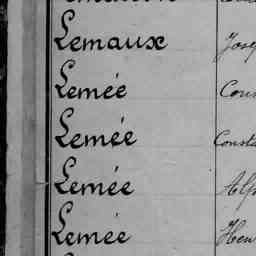 Lemaux Jose
Lemée
Lemée Consta
Lemée Alp
Lemée Hen